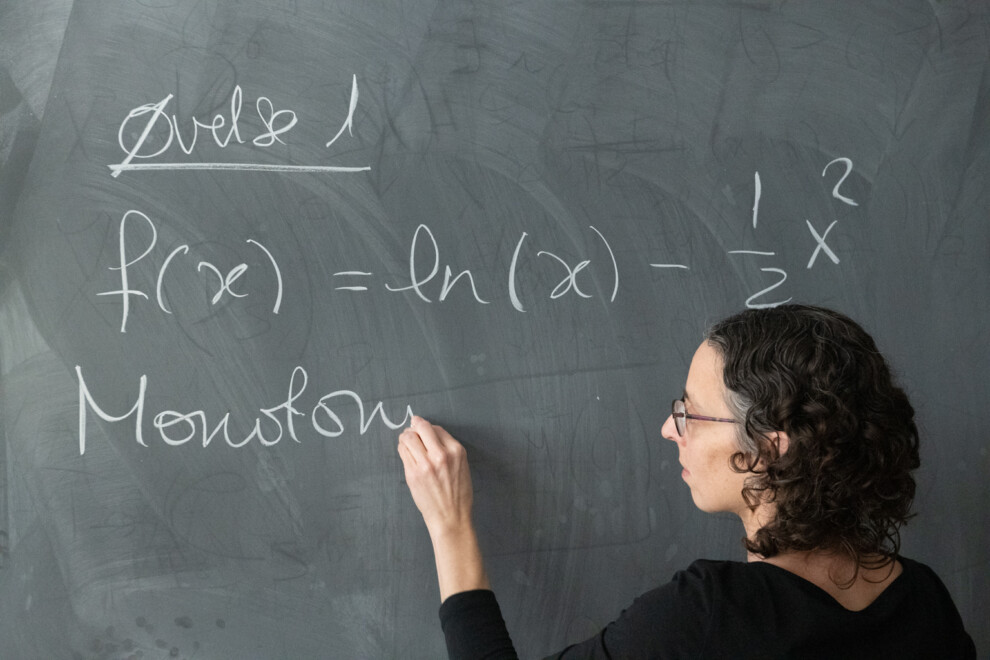 Øvelse 1
f(x) = ln(x) - 1/2 x²
Monoton